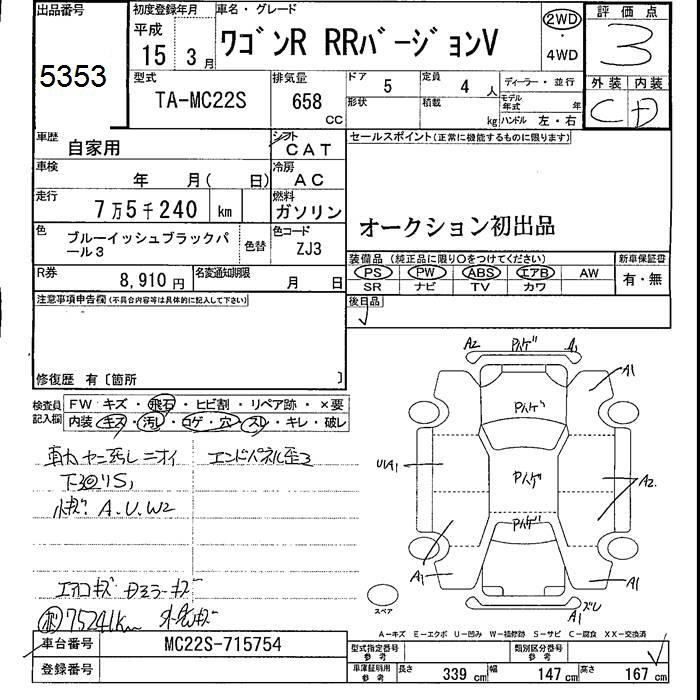 出品番号
5353
初度登録年月
平成
15年 3月
車名・グレード
ワゴンR RRバージョンV
2WD
・
4WD
評価点
3
外装 内装
C D
型式
TA-MC22S
排気量
658
CC
ドア
5
定員
4 人
ディーラー・並行
形状
積載
kg
モデル年式 年
ハンドル 左・右
車歴
自家用
シフト
CAT
セールスポイント(正常に機能するものに限ります)
オークション初出品
車検
年 月( 日)
冷房
AC
走行
7万5千240 km
燃料
ガソリン
色
ブルーイッシュブラックパール3
色替
色コード
ZJ3
装備品 (純正品に限り○をつけてください)
新車保証書
PS PW ABS エアB AW
SR ナビ TV カワ
有・無
R券
8,910 円
名変通知期限
月 日
後日品
注意事項申告欄(不具合内容等は具体的に記入して下さい)
修復歴 有〔箇所 〕
検査員記入欄
FW キズ・飛石・ヒビ割・リペア跡・×要
内装 キズ・汚レ・コゲ・穴・スレ・キレ・破レ
エンドパネル歪3
A.U.W2
エアロキズ
75241km
A2 Pハゲ A1
A1
Pハゲ
U1A1
Pハゲ
A2
Pハゲ
A1
A1
スペア
A1
ズレ
A-キズ E-エクボ U-凹み W-補修跡 S-サビ C-腐食 XX-交換済
車台番号
MC22S-715754
型式指定番号 参考
類別区分番号 参考
登録番号
車庫証明用 参考
長さ 339 cm 幅 147 cm 高さ 167 cm